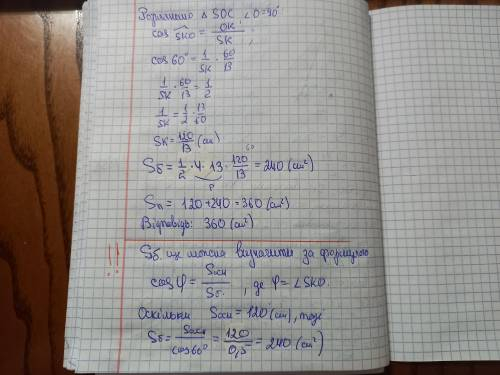 Розглянемо △ SOC, ∠O=90°
cos SKO = OK/SK ;
cos 60° = 1/SK · 60/13
1/SK · 60/13 = 1/2
1/SK = 1/2 · 13/60
SK = 120/13 (см)
Sб = 1/2 · 4 · 13 · 120/13 = 240 (см²)
60
P
Sп = 120+240 = 360 (см²)
Відповідь: 360 (см²)
!! Sб. ще можна визначити за формулою
cos φ = Sосн/Sб. , де φ = ∠SKO.
Оскільки Sосн = 120 (см), тоді
Sб = Sосн/cos60° = 120/0,5 = 240 (см²)